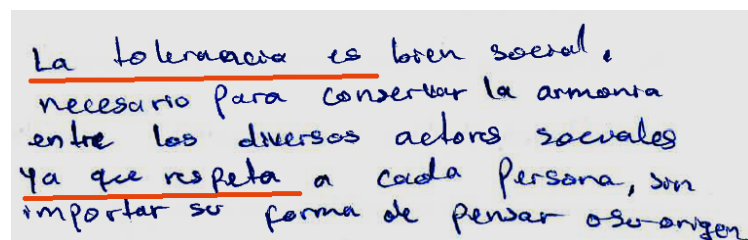 La tolerancia es bien social,
necesario para conservar la armonia
entre los diversos actores sociales
ya que respeta a cada persona, sin
importar su forma de pensar o su origen